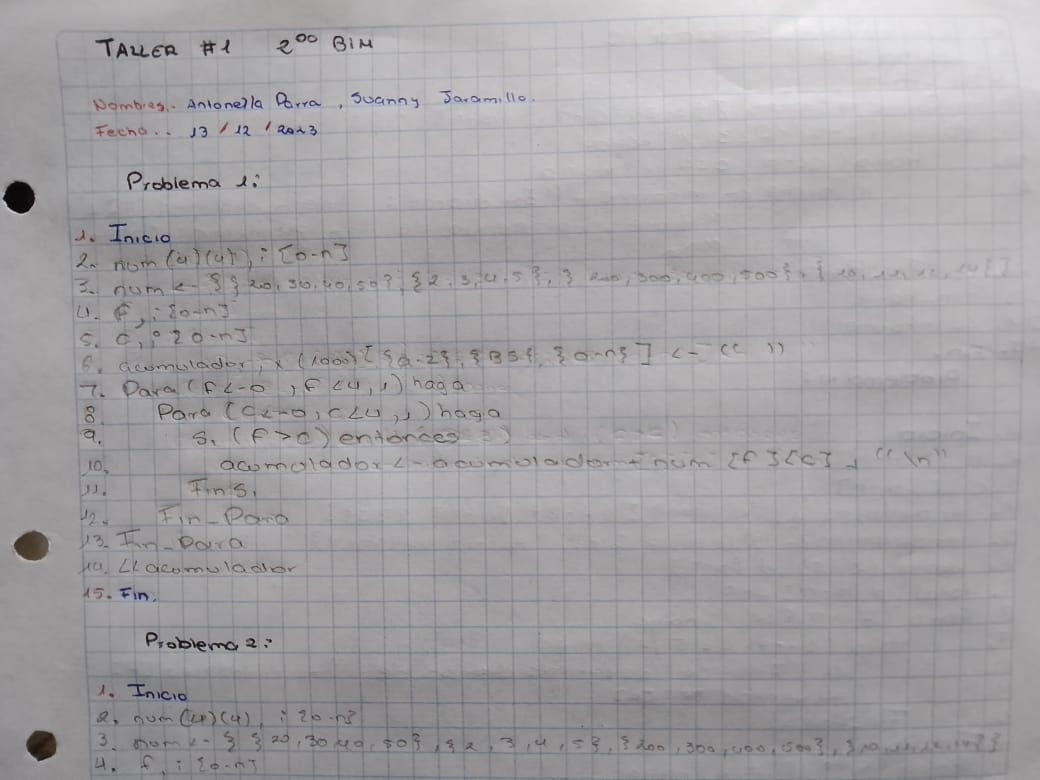 TALLER #1 2do BIM
Nombres.- Antonella Parra, Suanny Jaramillo.
Fecha.. 13 / 12 / 2023
Problema 1:
1. Inicio
2. num(4)(4), i [0-n]
3. num <- { } 20, 30, 40, 50}, {2, 3, 4, 5}, } 200, 300, 400, 500}, {10, 11, 12, 14}}
4. f, i [0-n]
5. c, i [0-n]
6. acumulador, x (1000) [ {a-z}, {BS}, {0-n} ] <- "  "
7. Para (f<-0, f<4, 1) haga
8. Para (c<-0, c<4, 1) haga
9. Si (f>c) entonces
10. acumulador <- acumulador + num [f][c] + "\n"
11. Fin Si
12. Fin-Para
13. Fin-Para
14. << acumulador
15. Fin.
Problema 2:
1. Inicio
2. num(4)(4), i [0-n]
3. num <- { { 20, 30 40, 50}, {2, 3, 4, 5}, {200, 300, 400, 500}, {10, 11, 12, 14}}
4. f, i [0-n]